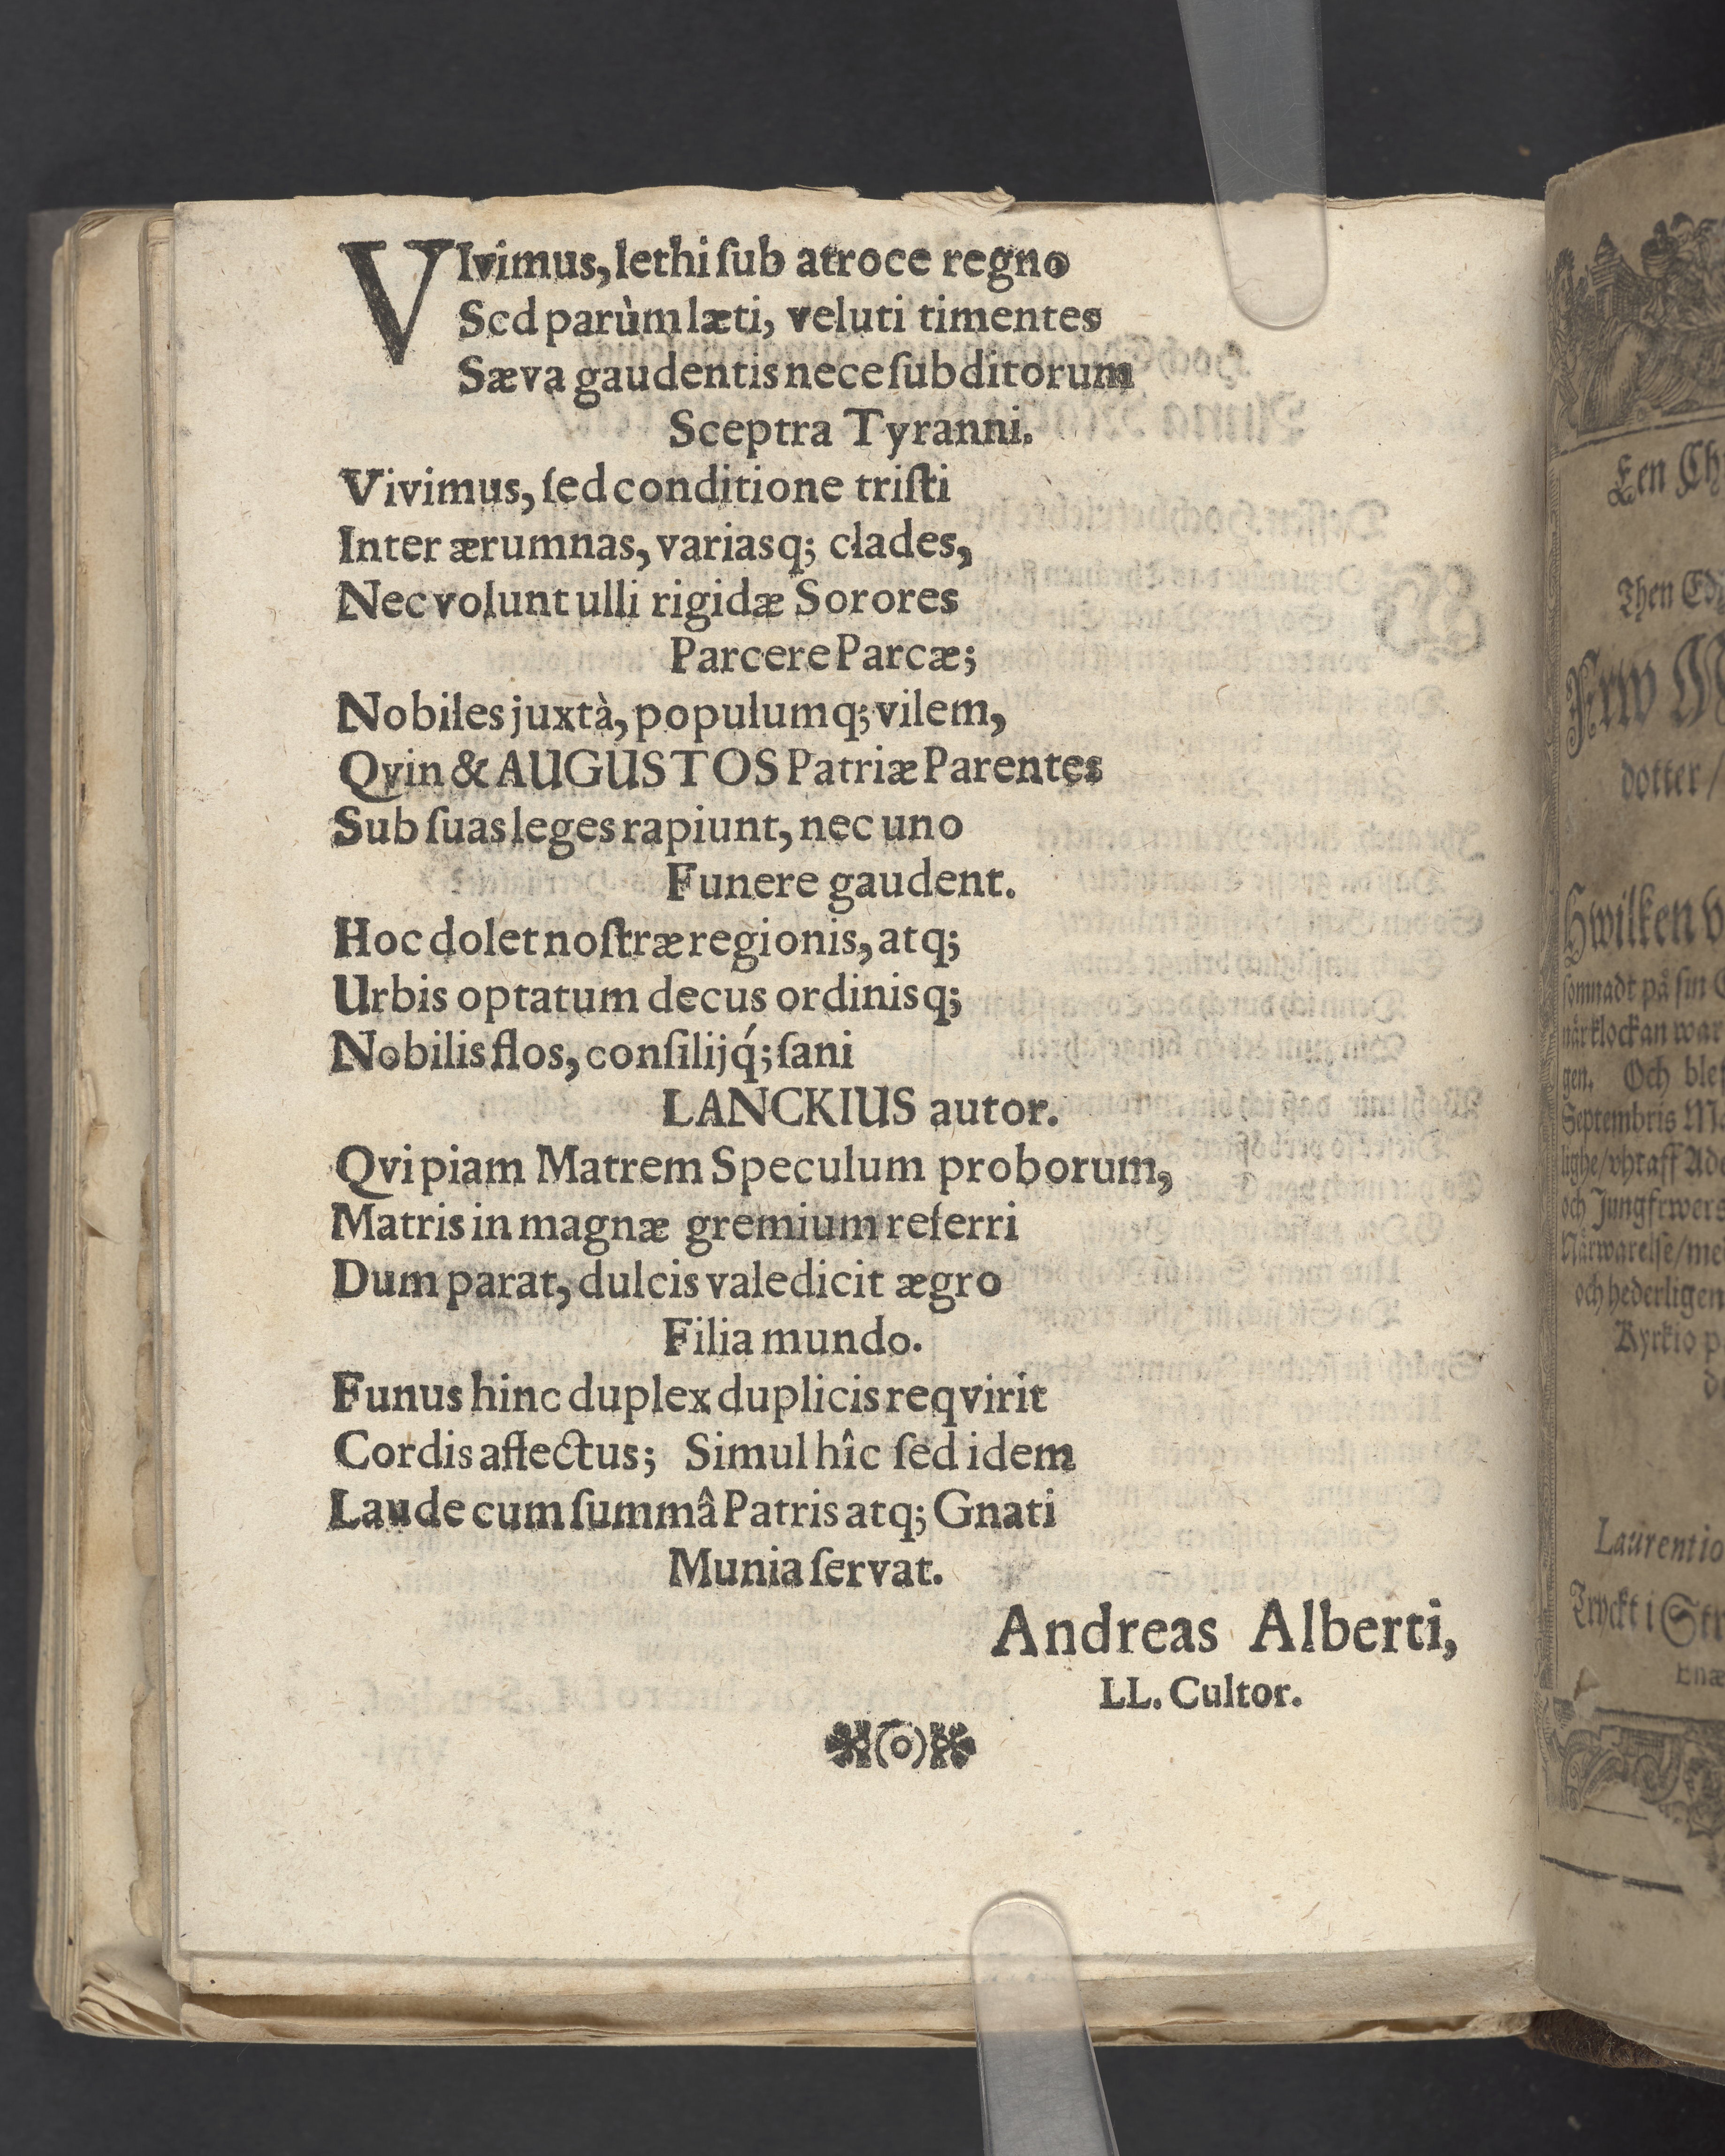 VIvimus, lethi ſub atroce regno
Sed parùm læti, veluti timentes
Sæva gaudentis nece ſubditorum
Sceptra Tyranni.
Vivimus, ſed conditione triſti
Inter ærumnas, variasq; clades,
Nec volunt ulli rigidæ Sorores
Parcere Parcæ;
Nobiles juxtà, populumq; vilem,
Qvin & AUGUSTOS Patriæ Parentes
Sub ſuas leges rapiunt, nec uno
Funere gaudent.
Hoc dolet noſtræ regionis, atq;
Urbis optatum decus ordinisq;
Nobilis flos, conſilijq́; ſani
LANCKIUS autor.
Qvi piam Matrem Speculum proborum,
Matris in magnæ gremium referri
Dum parat, dulcis valedicit ægro
Filia mundo.
Funus hinc duplex duplicis reqvirit
Cordis affectus; Simul hîc ſed idem
Laude cum ſummâ Patris atq; Gnati
Munia ſervat.
Andreas Alberti,
LL. Cultor.
(o)
Een
Then
Frw
dotter /
Hwilken
ſomnadt på ſin
när klockan war
gen. Och
Septembris
och Jungfrwers
Närwarelſe / 
och hederligen
Kyrkio
Laurentio
Tryckt i